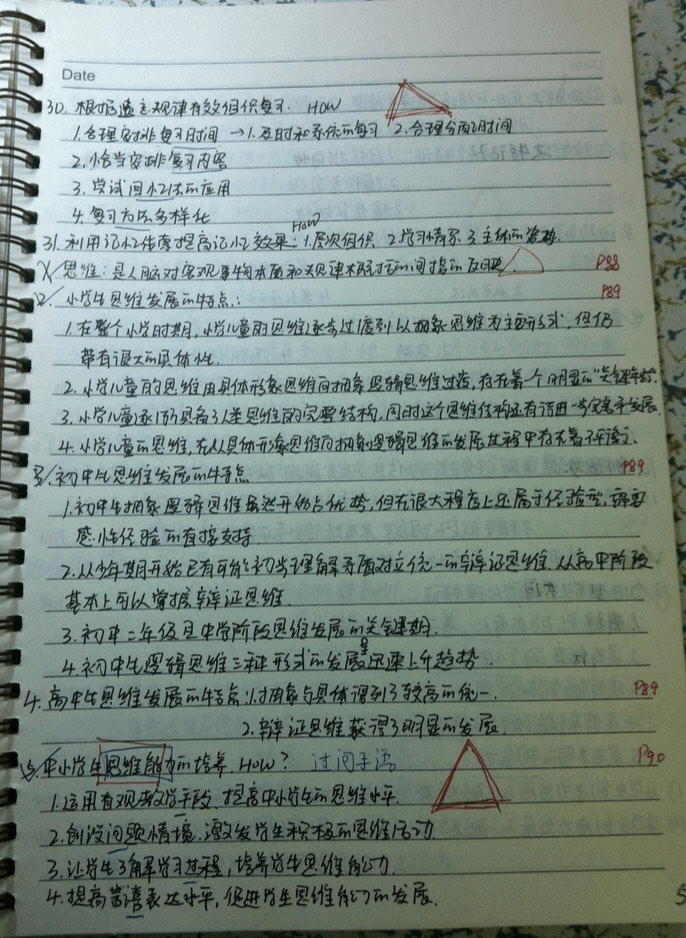 Date
30. 根据遗忘规律有效组织复习. HOW
1.合理安排复习时间 →1.及时和系统的复习 2.合理分配时间
2.恰当安排复习内容
3.尝试回忆法的应用
4.复习方法多样化
31.利用记忆伟度提高记忆效果: HOW 1.层次组织 2.学习情景 3.主体的姿势.
1.思维:是人脑对客观事物本质和规律概括的间接的反映. P88
2.小学生思维发展的特点: P89
1.在整个小学时期,小学儿童的思维逐步过渡到以抽象思维为主要形式,但仍
带有很大的具体性.
2.小学儿童的思维由具体形象思维向抽象逻辑思维过渡,存在着一个明显的"关键年龄".
3.小学儿童逐渐具备了人类思维的完整结构,同时这个思维结构还有待进一步完善和发展.
4.小学儿童的思维,在从具体形象思维向抽象逻辑思维的发展过程中存在着不平衡.
3.初中生思维发展的特点 P89
1.初中生抽象逻辑思维虽然开始占优势,但在很大程度上还属于经验型,需要
感性经验的直接支持.
2.从少年期开始已有可能初步理解矛盾对立统一的辩证思维.从高中阶段
基本上可以掌握辩证思维.
3.初中二年级是中学阶段思维发展的关键期.
4.初中生逻辑思维三种形式的发展呈迅速上升趋势.
4.高中生思维发展的特点:1.抽象与具体得到了较高的统一. P89
2.辩证思维获得了明显的发展.
5.中小学生思维能力的培养.HOW? 过问手语 P90
1.运用直观教学手段,提高中小学生的思维水平.
2.创设问题情境,激发学生积极的思维活动.
3.让学生了解学习过程,培养学生思维能力.
4.提高言语表达水平,促进学生思维能力的发展.
5